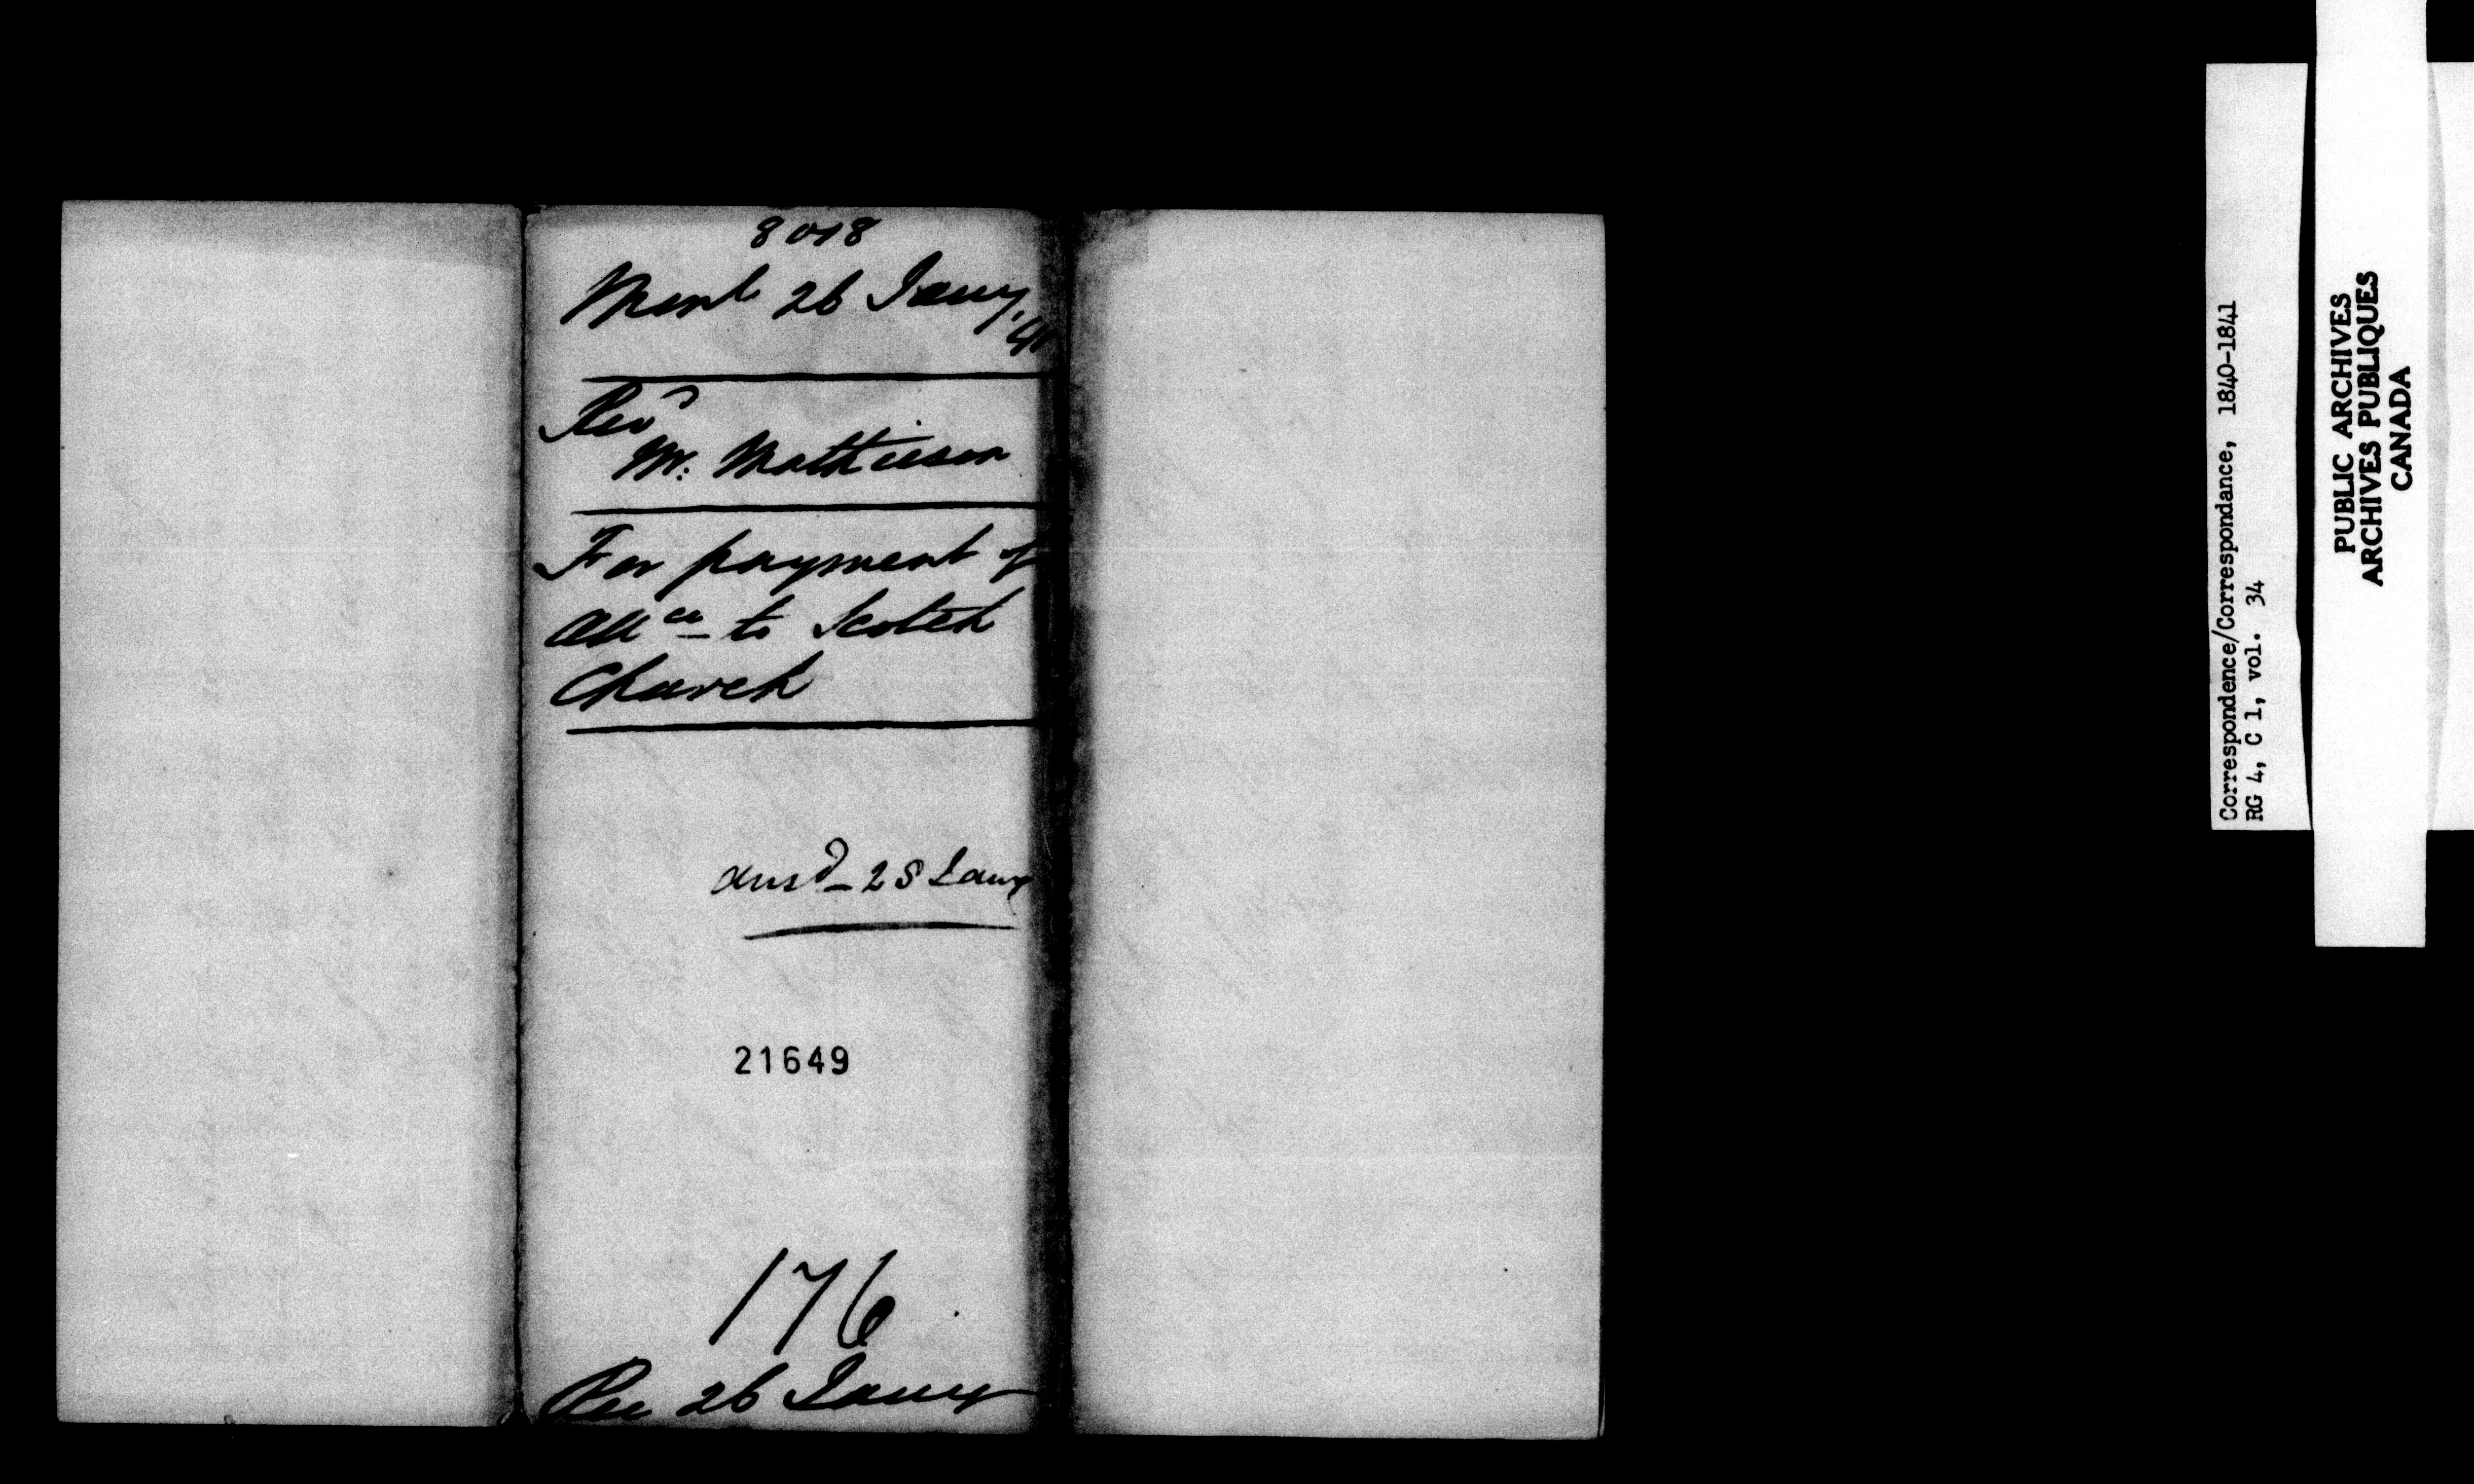 8018
Monl 26 Jany,
41
Revd
Mr. Mathieson
For payment of
allce to Scotch
Church
ansd 28 Jany
21649
176
Rec 26 Jany
Correspondence/Correspondance, 1840-1841
RG 4, C 1, vol. 34
PUBLIC ARCHIVES
ARCHIVES PUBLIQUES
CANADA